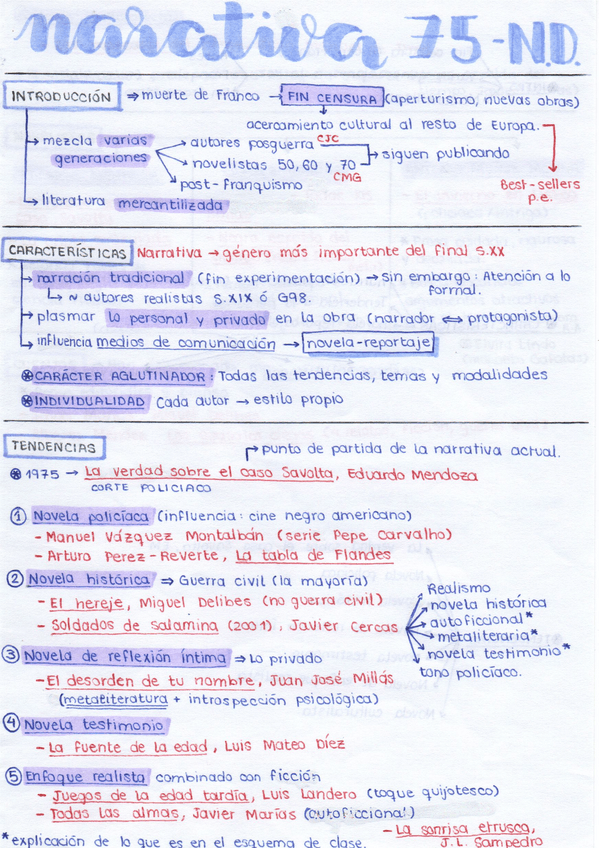 narrativa 75-N.D.
INTRODUCCIÓN ⇒ muerte de Franco → FIN CENSURA (aperturismo, nuevas obras)
acercamiento cultural al resto de Europa.
→ mezcla varias generaciones
→ autores posguerra CJC
→ novelistas 50, 60 y 70 CMG
→ siguen publicando
→ post-franquismo
Best-sellers
p.e.
→ literatura mercantilizada
CARACTERÍSTICAS Narrativa → género más importante del final S.XX
→ narración tradicional (fin experimentación) → Sin embargo: Atención a lo
formal.
↳ ~ autores realistas S.XIX ó G98.
→ plasmar lo personal y privado en la obra (narrador ↔ protagonista)
→ influencia medios de comunicación → novela-reportaje
* CARÁCTER AGLUTINADOR: Todas las tendencias, temas y modalidades
* INDIVIDUALIDAD Cada autor → estilo propio
TENDENCIAS
→ punto de partida de la narrativa actual.
* 1975 → La verdad sobre el caso Savolta, Eduardo Mendoza
CORTE POLICIACO
① Novela policíaca (influencia: cine negro americano)
- Manuel Vázquez Montalbán (serie Pepe Carvalho)
- Arturo Perez-Reverte, La tabla de Flandes
② Novela histórica ⇒ Guerra civil (la mayoría)
- El hereje, Miguel Delibes (no guerra civil)
- Soldados de Salamina (2001), Javier Cercas
Realismo
novela histórica
autoficcional*
metaliteraria*
novela testimonio*
tono policíaco.
③ Novela de reflexión íntima ⇒ Lo privado
- El desorden de tu nombre, Juan José Millás
(metaliteratura + introspección psicológica)
④ Novela testimonio
- La fuente de la edad, Luis Mateo Díez
⑤ Enfoque realista combinado con ficción
- Juegos de la edad tardía, Luis Landero (toque quijotesco)
- Todas las almas, Javier Marías (autoficcional)
- La sonrisa etrusca,
J.L. Sampedro
* explicación de lo que es en el esquema de clase.